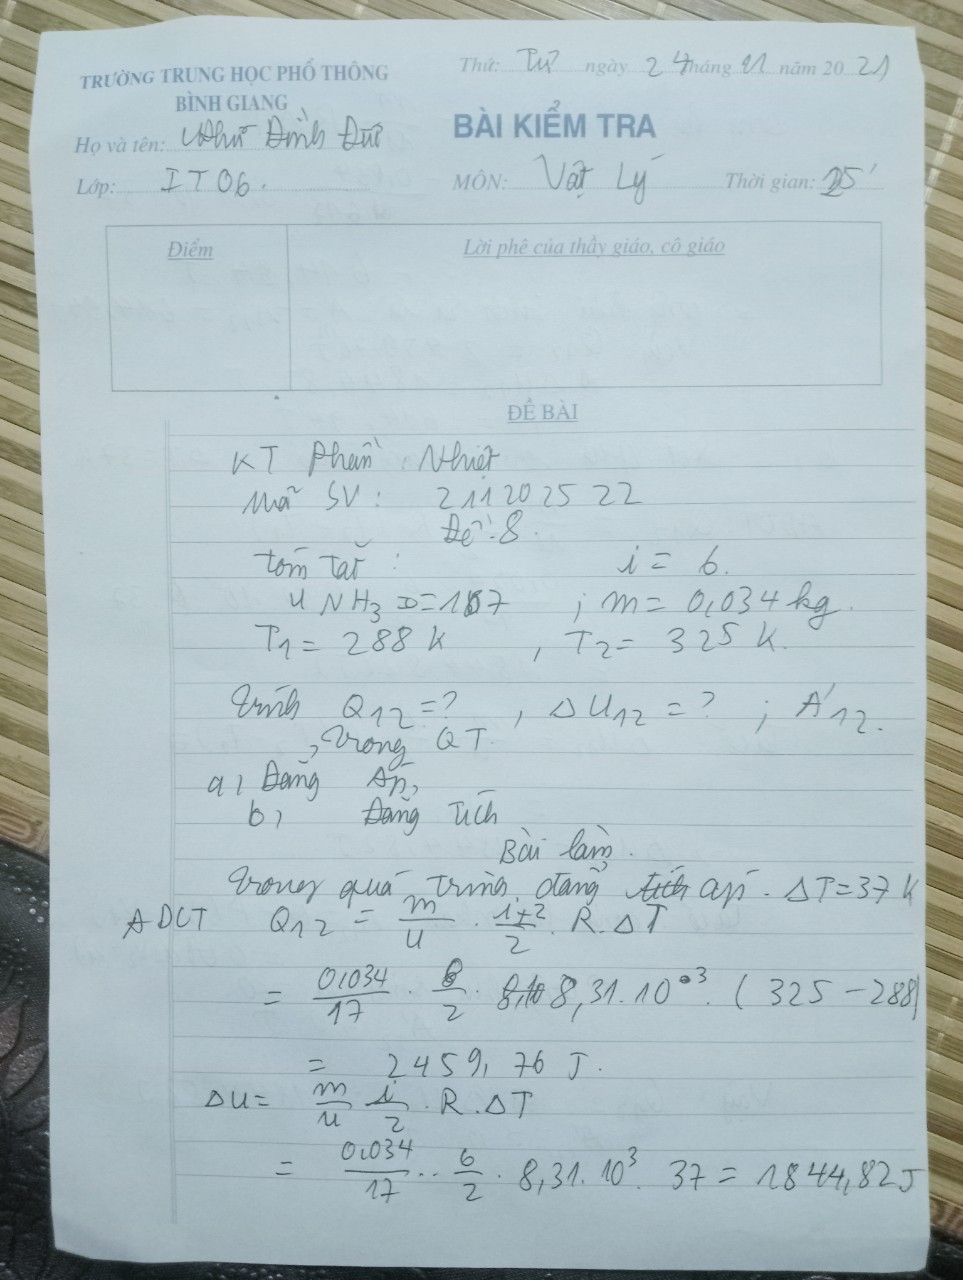 TRƯỜNG TRUNG HỌC PHỔ THÔNG
BÌNH GIANG
Thứ: Tư ngày 24 tháng 11 năm 2021
Họ và tên: Nhữ Đình Đức
BÀI KIỂM TRA
Lớp: IT06.
MÔN: Vật Lý Thời gian: 25'
Điểm
Lời phê của thầy giáo, cô giáo
ĐỀ BÀI
KT Phần : Nhiệt
Mã SV: 211202522
Đề: 8.
tóm tắt : i = 6.
; m = 0,034 kg.
T1 = 288 K , T2 = 325 K.
tính Q12 = ? , ΔU12 = ? ; A'12.
, trong QT.
a, Đẳng Áp,
b, Đẳng tích
Bài làm.
Trong quá trình đẳng áp. ΔT = 37 K
ADCT Q12 = m/u . i+2/2 . R.ΔT
= 0,034/17 . 8/2 . 8,31.10^3. (325 - 288)
= 2459,76 J.
ΔU = m/u i/2 . R.ΔT
= 0,034/17 . 6/2 . 8,31.10^3. 37 = 1844,82 J